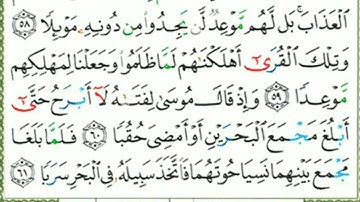 ٱلْعَذَابَ ۚ بَل لَّهُم مَّوْعِدٌ لَّن يَجِدُوا۟ مِن دُونِهِۦ مَوْئِلًا ٥٨
وَتِلْكَ ٱلْقُرَىٰٓ أَهْلَكْنَٰهُمْ لَمَّا ظَلَمُوا۟ وَجَعَلْنَا لِمَهْلِكِهِم
مَّوْعِدًا ٥٩ وَإِذْ قَالَ مُوسَىٰ لِفَتَىٰهُ لَآ أَبْرَحُ حَتَّىٰٓ
أَبْلُغَ مَجْمَعَ ٱلْبَحْرَيْنِ أَوْ أَمْضِىَ حُقُبًا ٦٠ فَلَمَّا بَلَغَا
مَجْمَعَ بَيْنِهِمَا نَسِيَا حُوتَهُمَا فَٱتَّخَذَ سَبِيلَهُۥ فِى ٱلْبَحْرِ سَرَبًا ٦١